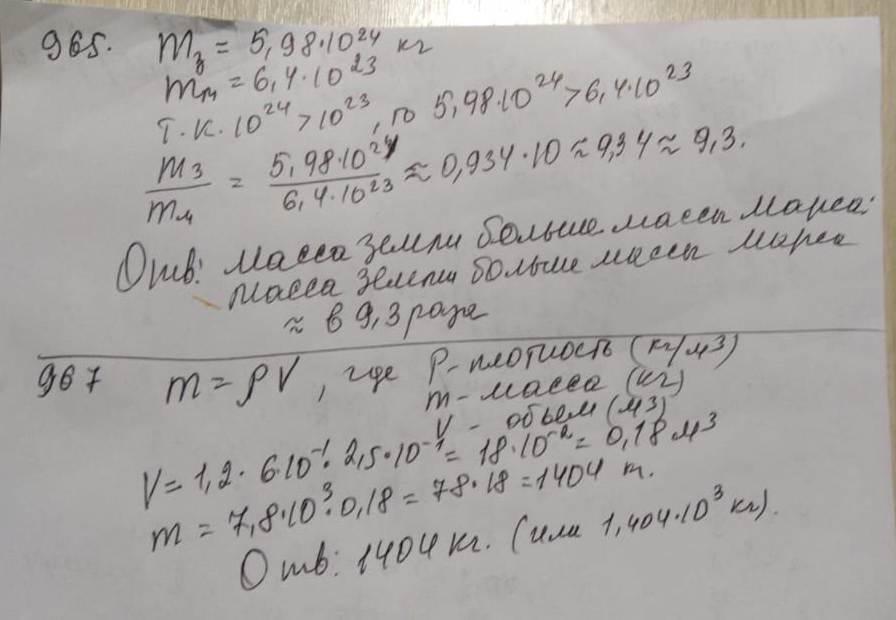 965. mз = 5,98·10²⁴ кг
mм = 6,4·10²³
т.к. 10²⁴ > 10²³, то 5,98·10²⁴ > 6,4·10²³
mз/mм = 5,98·10²⁴/6,4·10²³ ≈ 0,934·10 ≈ 9,34 ≈ 9,3.
Отв: масса Земли больше массы Марса:
масса Земли больше массы Марса
≈ в 9,3 раза
967 m = ρV, где ρ - плотность (кг/м³)
m - масса (кг)
V - объем (м³)
V = 1,2 · 6·10⁻¹ · 2,5·10⁻¹ = 18·10⁻² = 0,18 м³
m = 7,8·10³·0,18 = 78·18 = 1404 т.
Отв: 1404 кг. (или 1,404·10³ кг).